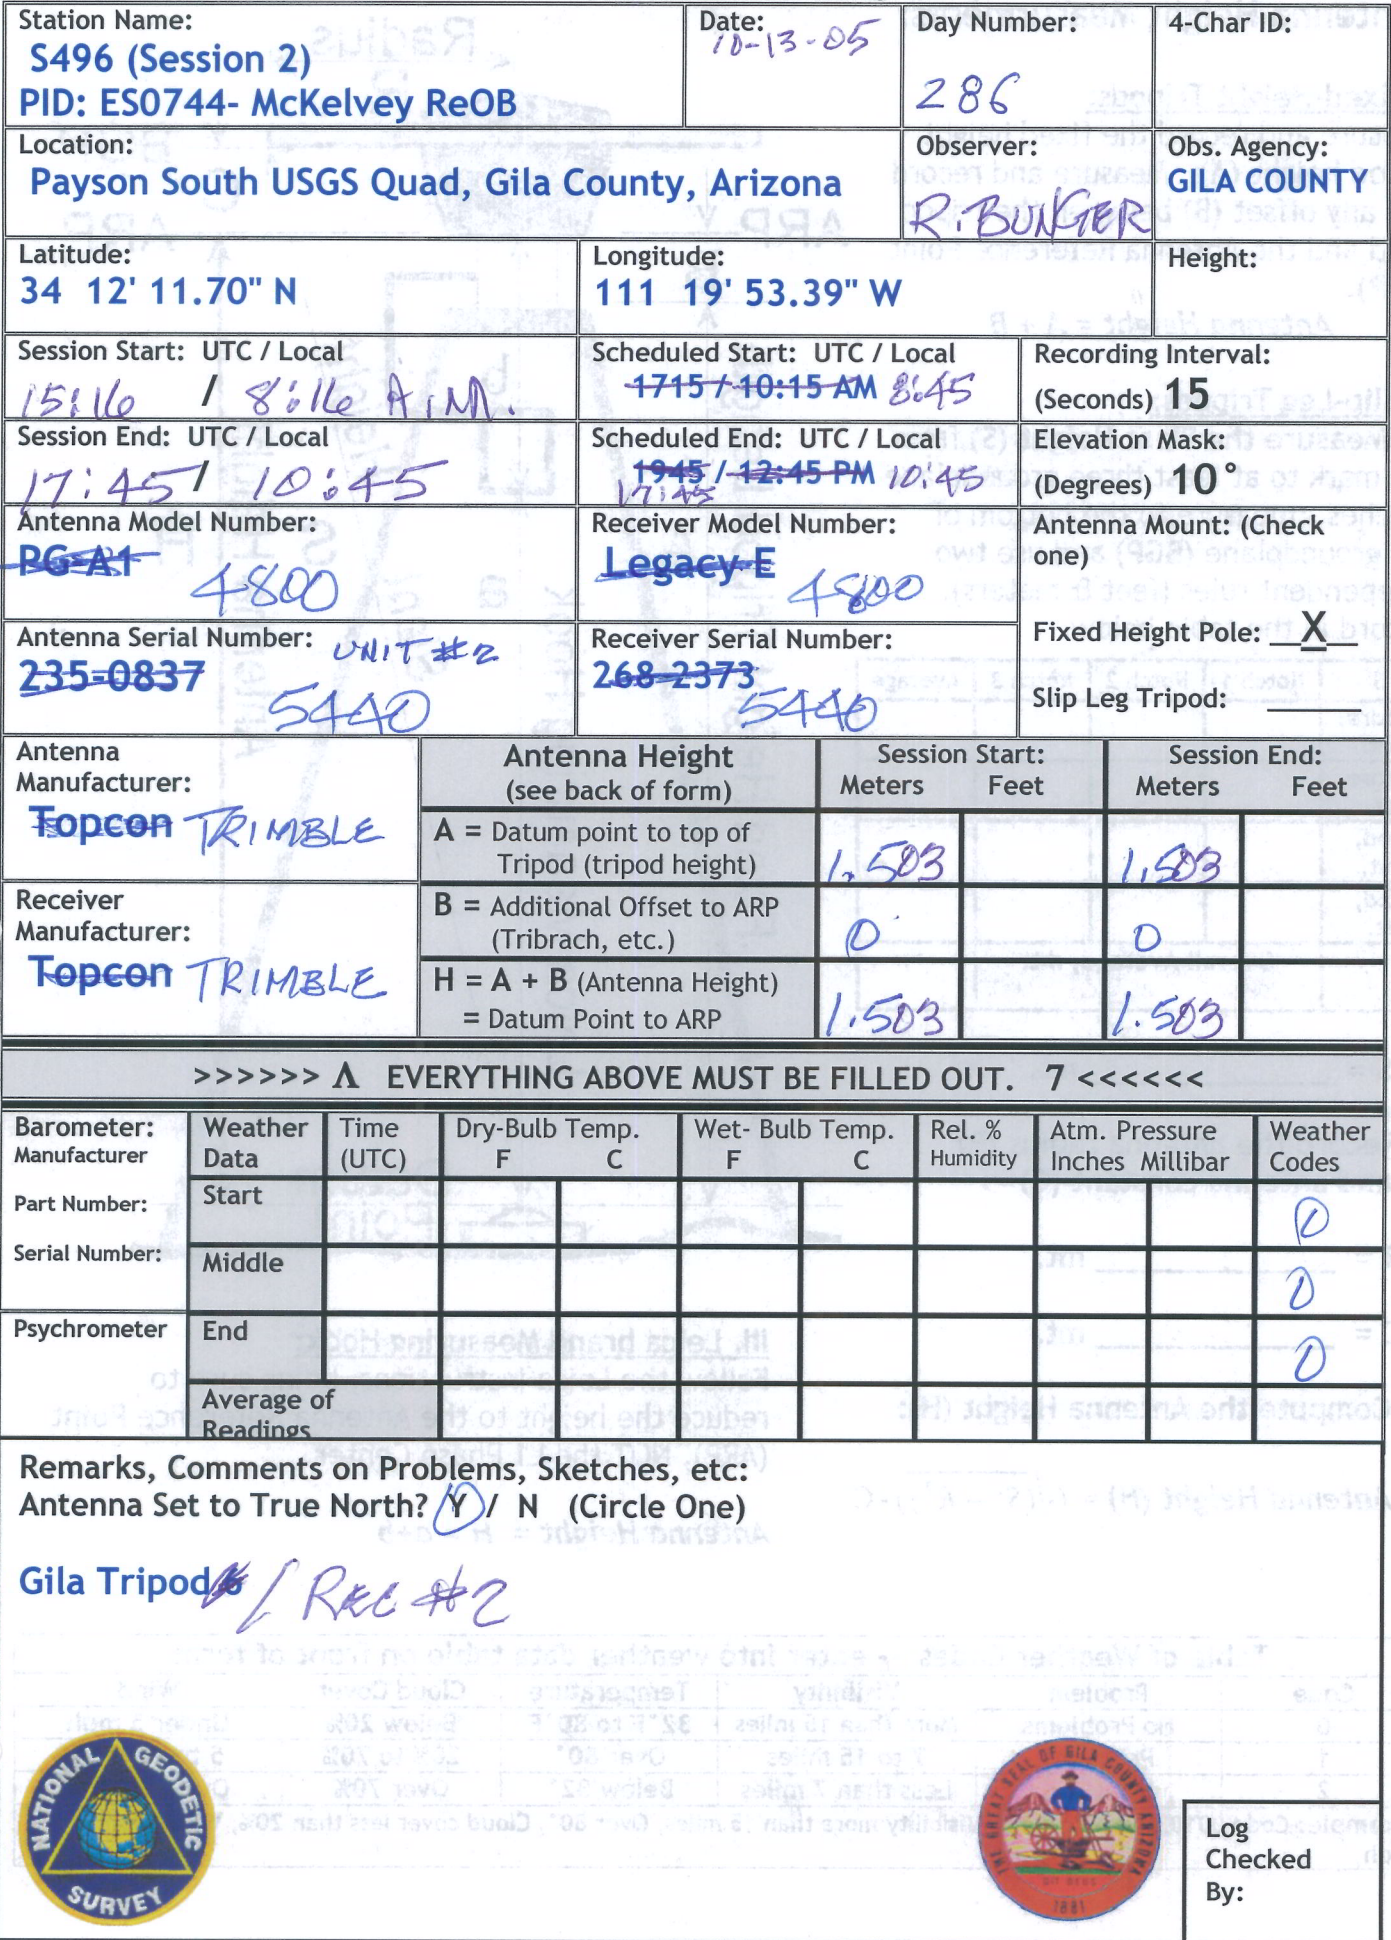 Station Name:
S496 (Session 2)
PID: ES0744- McKelvey ReOB
Date:
10-13-05
Day Number:
286
4-Char ID:
Location:
Payson South USGS Quad, Gila County, Arizona
Observer:
R. BUNGER
Obs. Agency:
GILA COUNTY
Latitude:
34 12' 11.70" N
Longitude:
111 19' 53.39" W
Height:
Session Start: UTC / Local
15:16 / 8:16 A.M.
Scheduled Start: UTC / Local
1715 / 10:15 AM 8:45
Recording Interval:
(Seconds) 15
Session End: UTC / Local
17:45 / 10:45
Scheduled End: UTC / Local
1945 / 12:45 PM 10:45
17:45
Elevation Mask:
(Degrees) 10°
Antenna Model Number:
PG-A1 4800
Receiver Model Number:
Legacy-E 4800
Antenna Mount: (Check
one)
Fixed Height Pole: X
Slip Leg Tripod:
Antenna Serial Number:
UNIT #2
235-0837
5440
Receiver Serial Number:
268-2373
5440
Antenna
Manufacturer:
Topcon TRIMBLE
Receiver
Manufacturer:
Topcon TRIMBLE
Antenna Height
(see back of form)
Session Start:
Meters Feet
Session End:
Meters Feet
A = Datum point to top of
Tripod (tripod height)
1.503 1.503
B = Additional Offset to ARP
(Tribrach, etc.)
0 0
H = A + B (Antenna Height)
= Datum Point to ARP
1.503 1.503
>>>>>> Λ EVERYTHING ABOVE MUST BE FILLED OUT. 7 <<<<<<
Barometer:
Manufacturer
Part Number:
Serial Number:
Psychrometer
Weather
Data
Time
(UTC)
Dry-Bulb Temp.
F C
Wet- Bulb Temp.
F C
Rel. %
Humidity
Atm. Pressure
Inches Millibar
Weather
Codes
Start 0
Middle 0
End 0
Average of
Readings
Remarks, Comments on Problems, Sketches, etc:
Antenna Set to True North? Y / N (Circle One)
Gila Tripod / REC #2
NATIONAL GEODETIC SURVEY
GREAT SEAL OF GILA COUNTY ARIZONA
1881
Log
Checked
By: